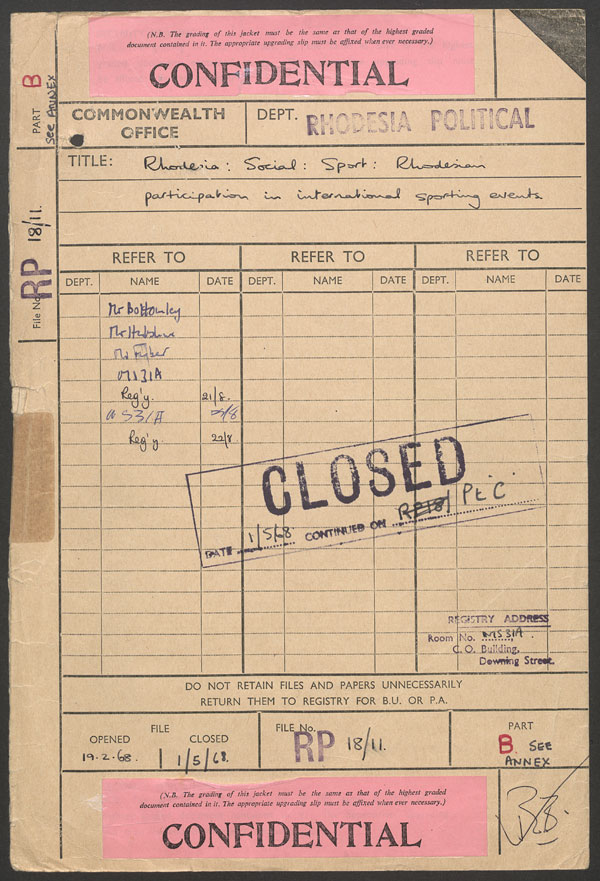 (N.B. The grading of this jacket must be the same as that of the highest graded
document contained in it. The appropriate upgrading slip must be affixed when ever necessary.)
CONFIDENTIAL
PART B
See ANNEX
COMMONWEALTH
OFFICE
DEPT. RHODESIA POLITICAL
TITLE: Rhodesia: Social: Sport: Rhodesian
participation in international sporting events
File No. RP 18/11.
REFER TO REFER TO REFER TO
DEPT. NAME DATE DEPT. NAME DATE DEPT. NAME DATE
Mr Bottomley
Mr
Mr
MS31A
Reg'y. 21/8.
MS31A
Reg'y 22/8.
CLOSED
DATE 1/5/68 CONTINUED ON RP18/ Pt C
REGISTRY ADDRESS
Room No. MS31A.
C.O. Building,
Downing Street.
DO NOT RETAIN FILES AND PAPERS UNNECESSARILY
RETURN THEM TO REGISTRY FOR B.U. OR P.A.
FILE
OPENED CLOSED
19.2.68. 1/5/68.
FILE No.
RP 18/11.
PART
B SEE
ANNEX
(N.B. The grading of this jacket must be the same as that of the highest graded
document contained in it. The appropriate upgrading slip must be affixed when ever necessary.)
CONFIDENTIAL